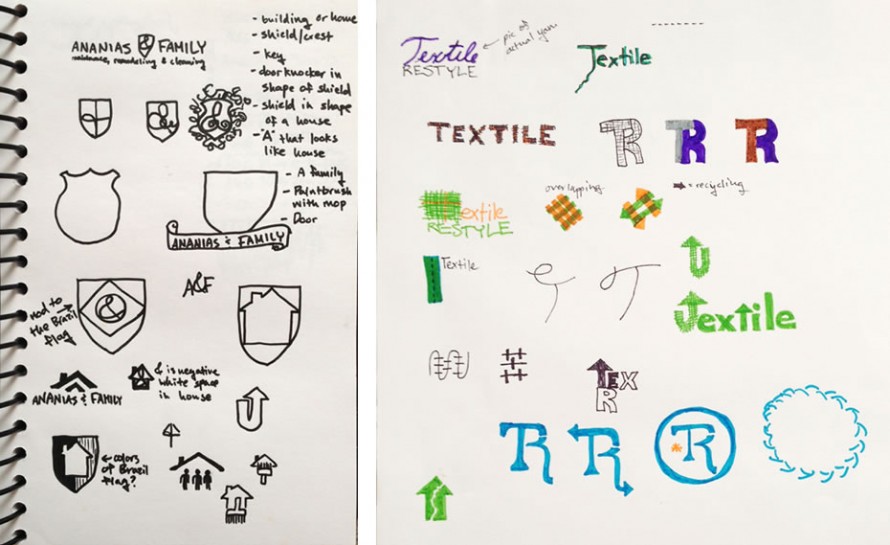 ANANIAS & FAMILY
- building or home
- shield/crest
- key
- door knocker in
shape of shield
- shield in shape
of a house
- "A" that looks
like house
- A family
- Paintbrush
with mop
- Door
&
&
ANANIAS & FAMILY
nod to
the Brazil
flag
&
A&F
ANANIAS & FAMILY
& is negative
white space
in house
← colors
of Brazil
flag?
Textile
RESTYLE
← pic of
actual yarn
Textile
TEXTILE
TR
TR
TR
Textile
RESTYLE
overlapping
= recycling
Textile
T
T
Textile
TEX
R
TR
TR
TR